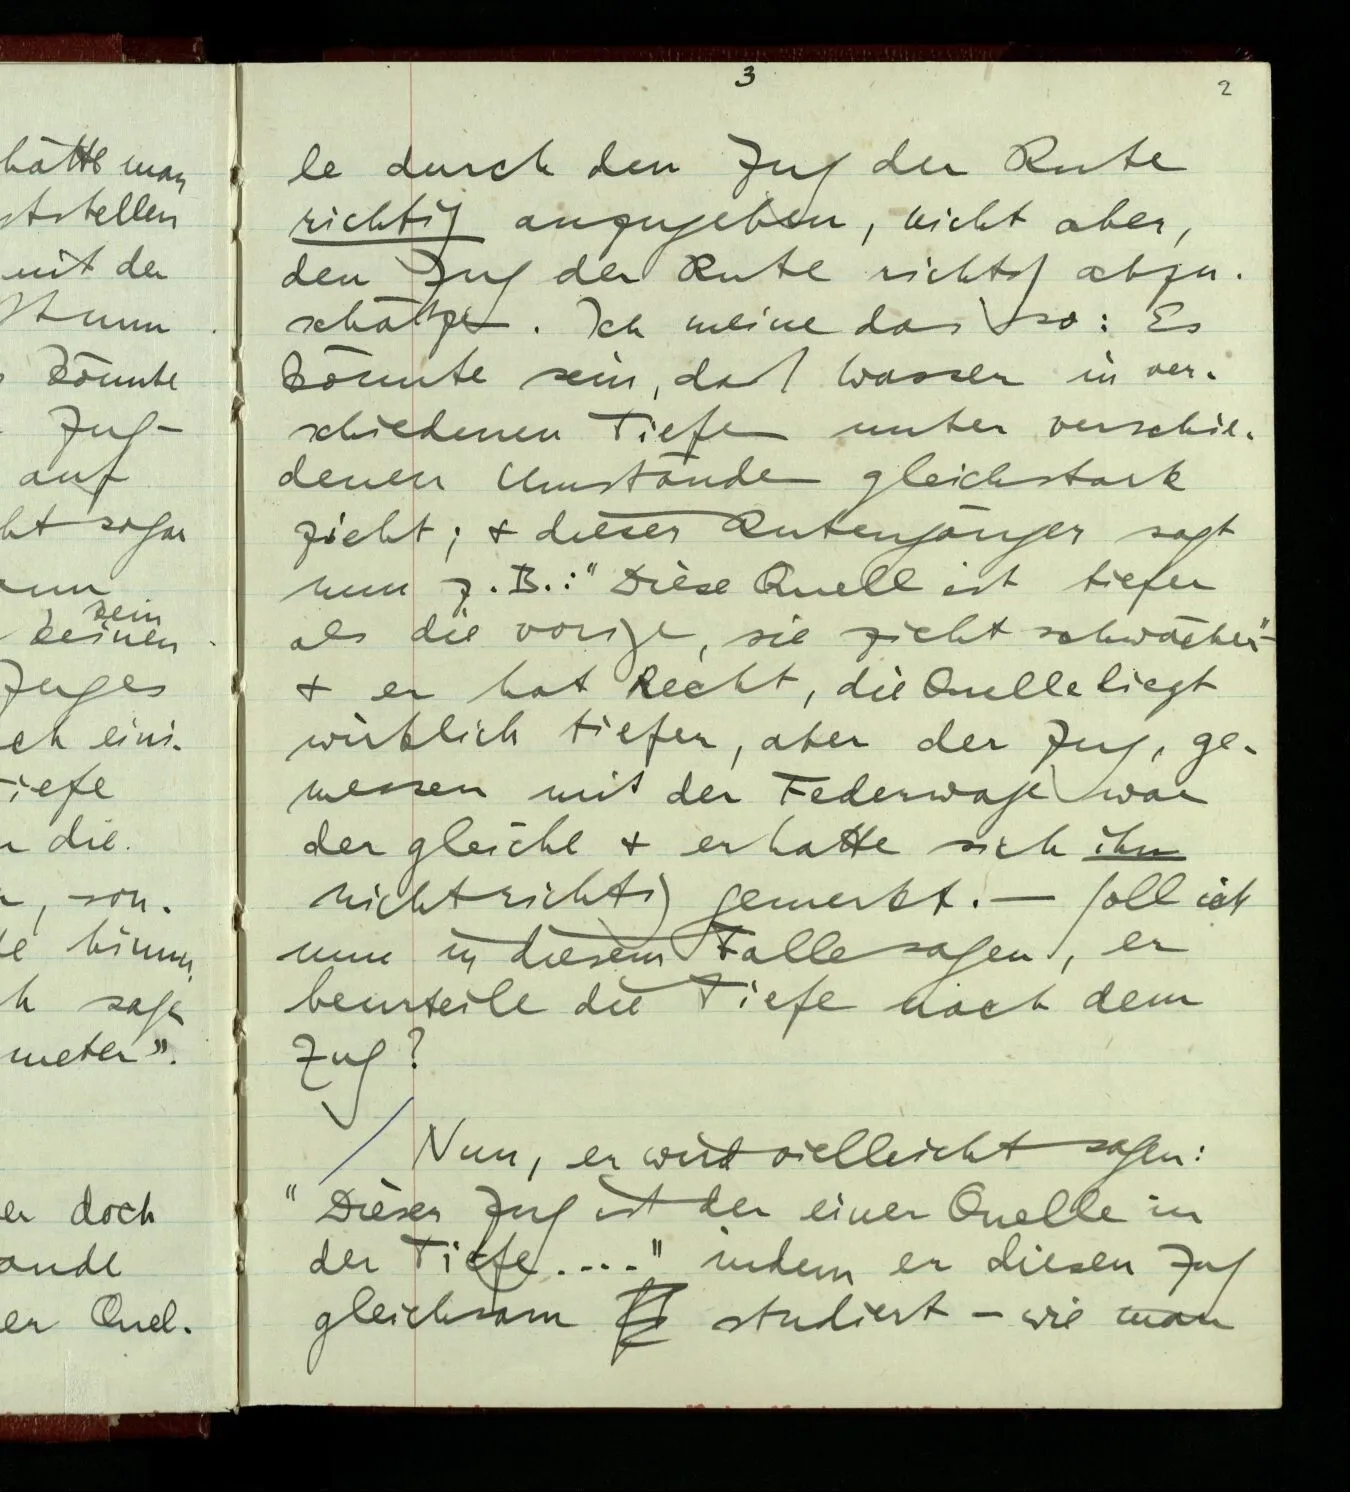 hätte man
ststellen
mit der
könnte
Zug-
auf
ht sogar
sein
keinen
Zuges
ch eini-
iefe
die
, son-
h sage
meter".
er doch
ande
er Quel-
3
2
le durch den Zug der Rute
richtig anzugeben, nicht aber,
den Zug der Rute richtig abzu-
schätzen. Ich meine das so: Es
könnte sein, daß Wasser in ver-
schiedenen Tiefen unter verschie-
denen Umständen gleichstark
zieht; & dieser Rutengänger sagt
nun z.B.: "Diese Quell ist tiefer
als die vorige, sie zieht schwächer"
& er hat Recht, die Quelle liegt
wirklich tiefer, aber der Zug, ge-
messen mit der Federwage war
der gleiche & er hatte sich ihn
nicht richtig gemerkt. — Soll ich
nun in diesem Falle sagen, er
beurteile die Tiefe nach dem
Zug?
Nun, er wird vielleicht sagen:
"Dieser Zug ist der einer Quelle in
der Tiefe...." indem er diesen Zug
gleichsam studiert – wie man